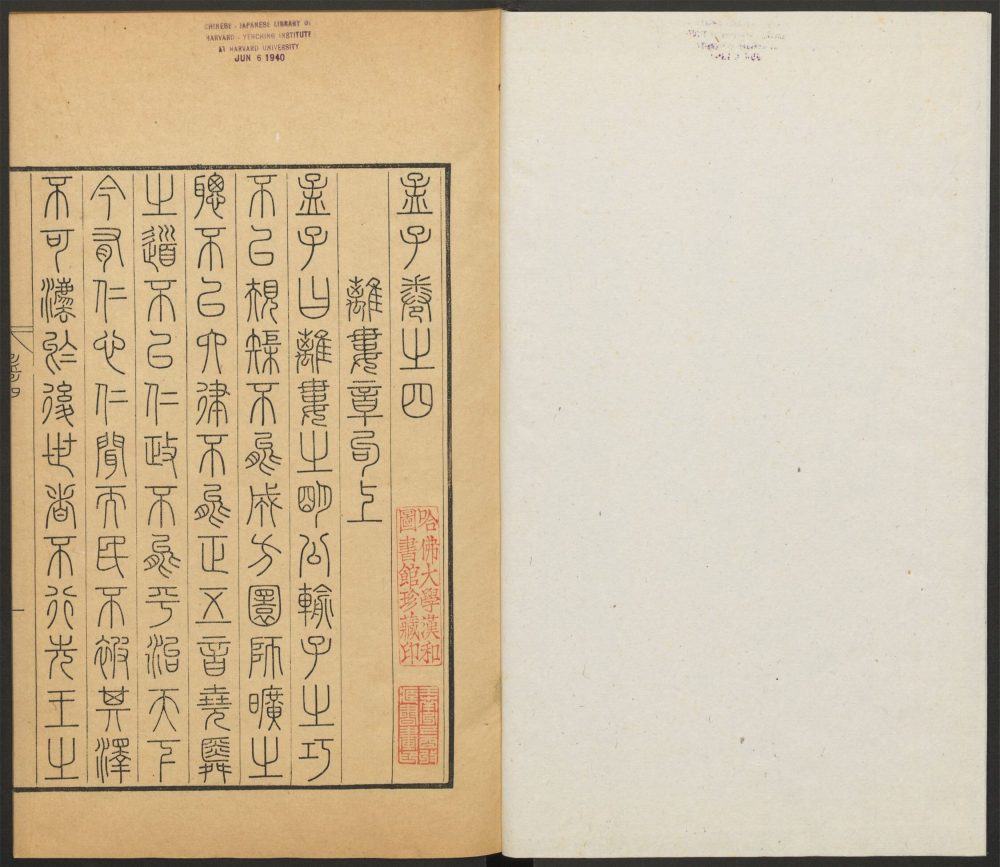 CHINESE - JAPANESE LIBRARY OF
HARVARD - YENCHING INSTITUTE
AT HARVARD UNIVERSITY
JUN 6 1940
孟子卷之四
離婁章句上
孟子曰離婁之明公輸子之巧
不以規矩不能成方圜師曠之
聰不以六律不能正五音堯舜
之道不以仁政不能平治天下
今有仁心仁聞而民不被其澤
不可灋於後世者不行先王之
哈佛大學漢和
圖書館珍藏印